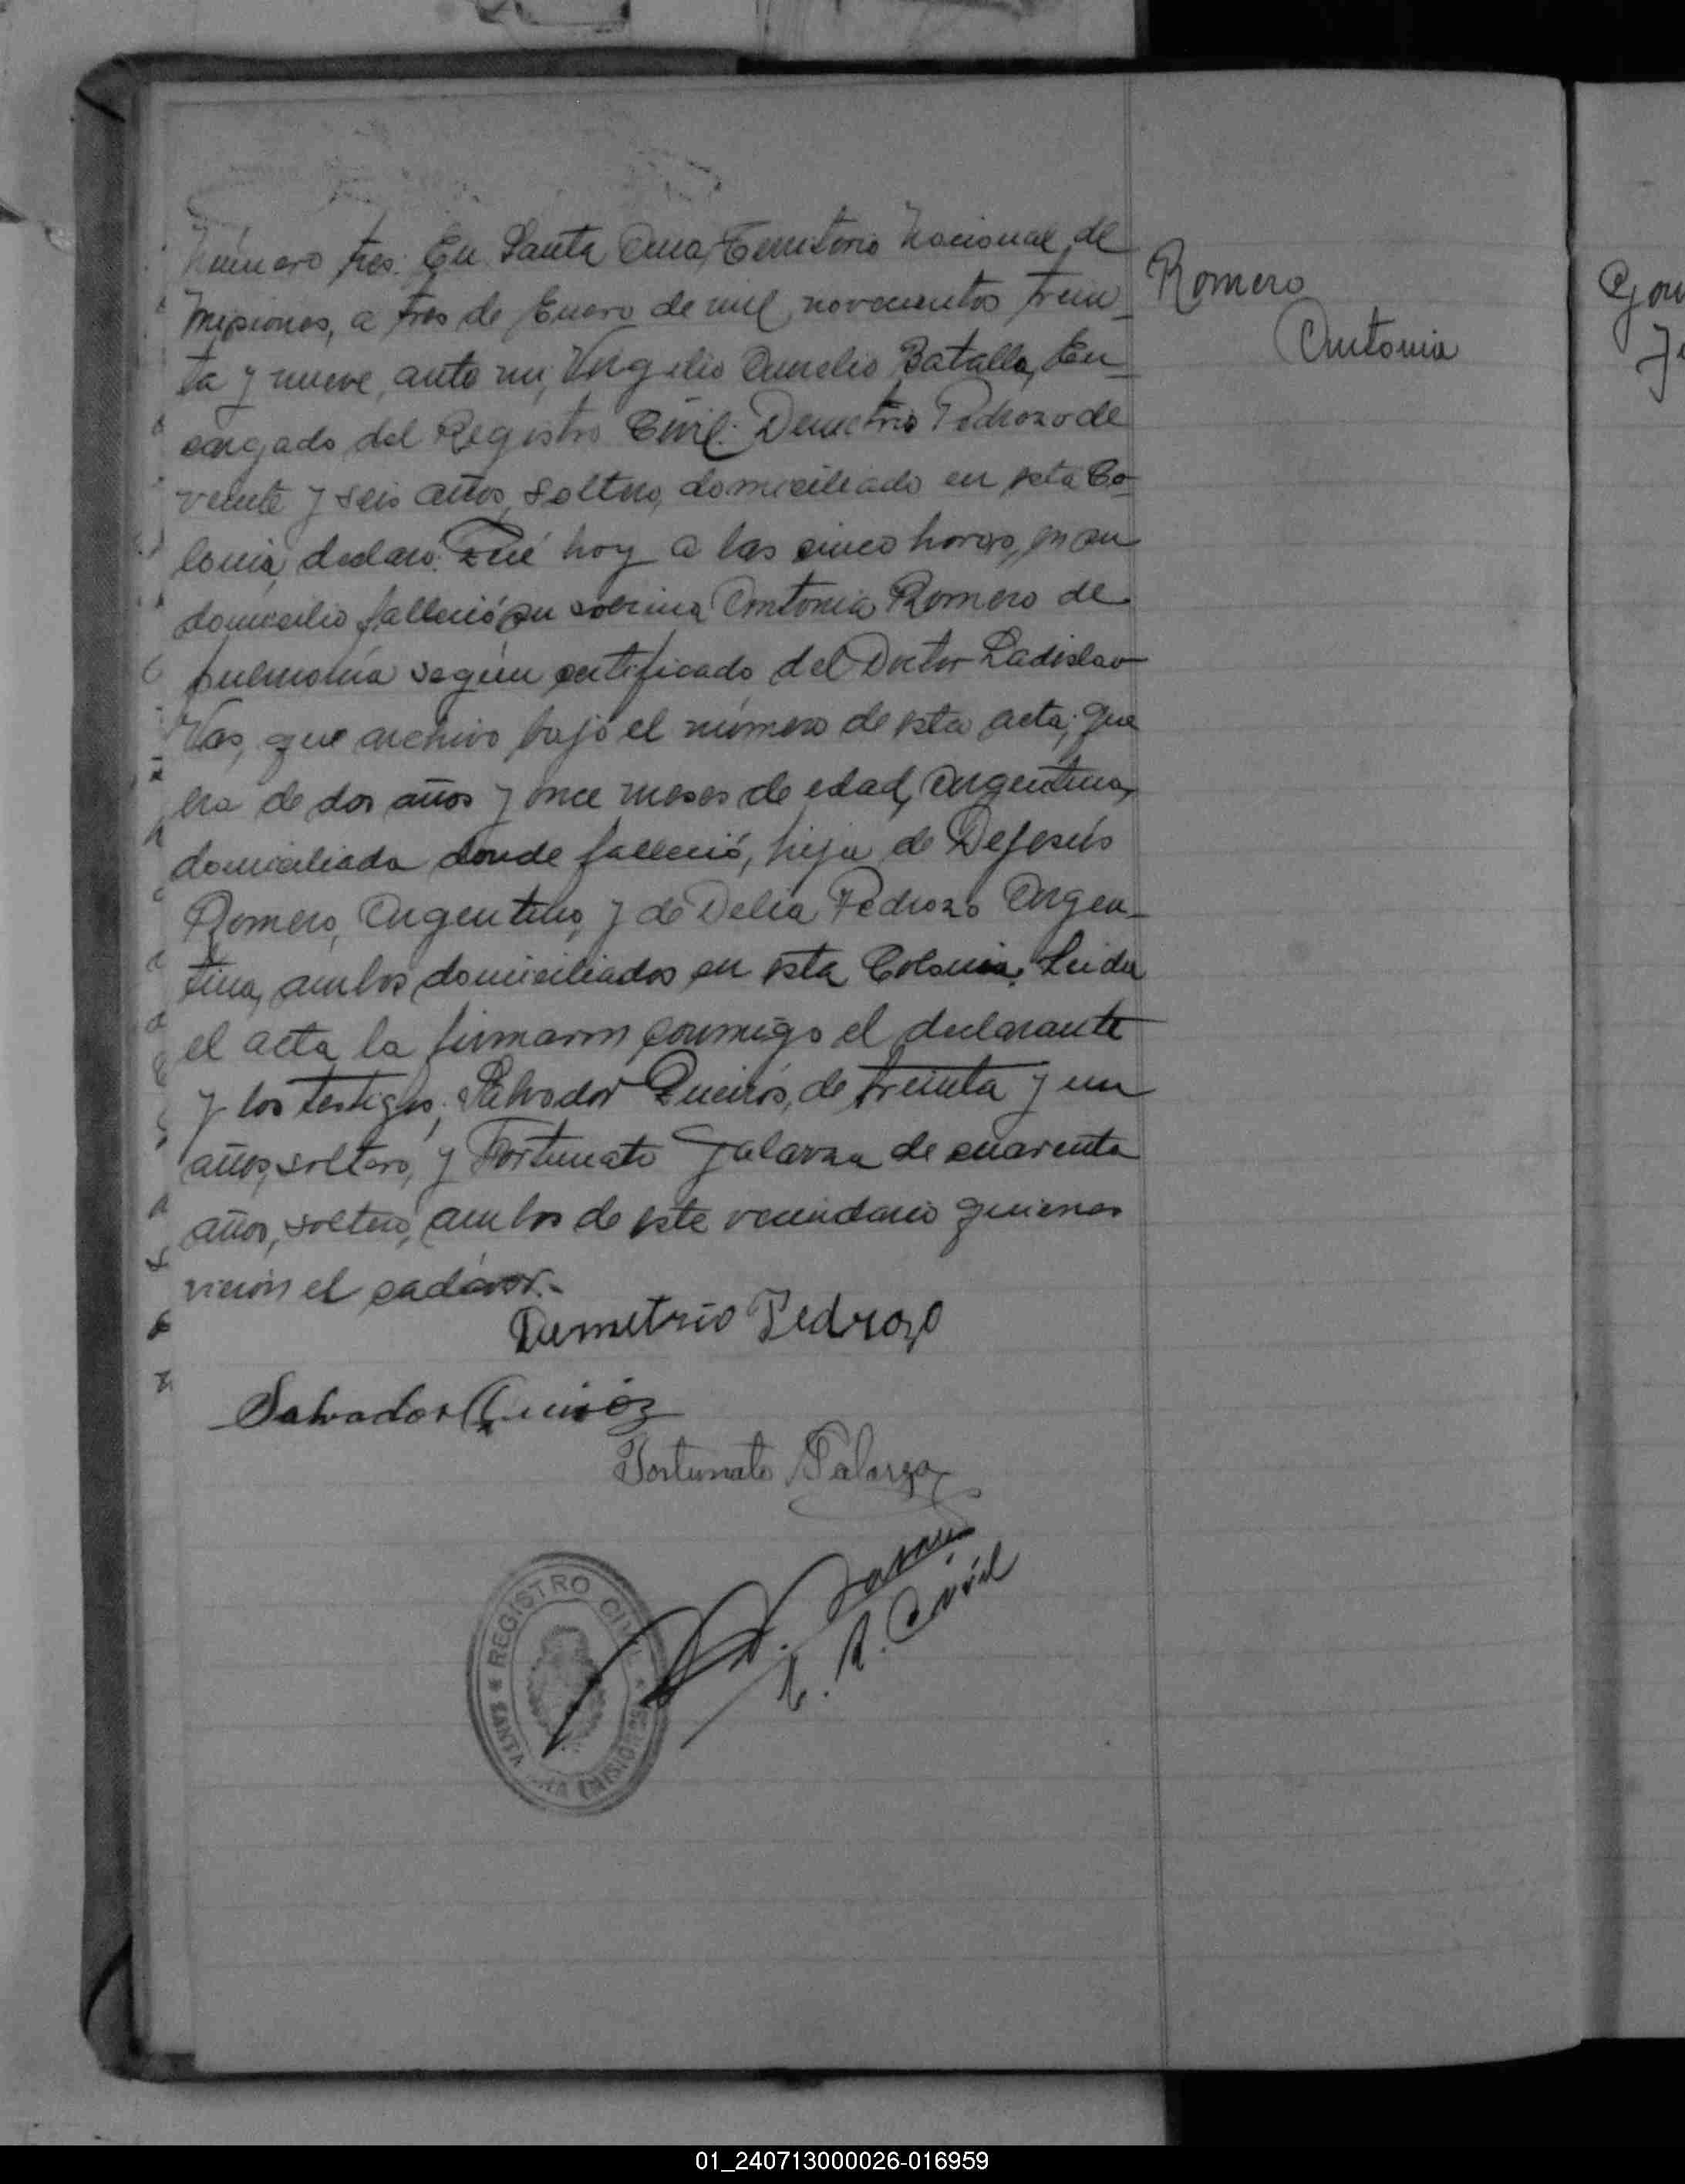 Número tres. En Santa Ana, Territorio Nacional de
Misiones, a tres de Enero de mil novecientos trein-
ta y nueve, ante mi, Virgilio Aurelio Batalla, En-
cargado del Registro Civil: Demetrio Pedrozo de
veinte y seis años, soltero, domiciliado en esta Co-
lonia, declaro: Qué hoy a las cinco horas, en su
domicilio falleció su sobrina Antonia Romero de
pulmonía según certificado del Doctor Ladislao
Vas, que archivo bajo el número de esta acta; que
era de dos años y once meses de edad, Argentina,
domiciliada donde falleció, hija de DeJesús
Romero, Argentino, y de Delia Pedrozo Argen-
tina, ambos domiciliados en esta Colonia. Leida
el acta la firmaron conmigo el declarante
y los testigos; Salvador Queirós, de treinta y un
años, soltero, y Fortunato Galarza de cuarenta
años, soltero, ambos de este vecindario quienes
vieron el cadáver.-
Romero
Antonia
Demetrio Pedrozo
Salvador Quiróz
Fortunato Galarza
E. R. Civil
REGISTRO CIVIL
SANTA ANA (MISIONES)
01_240713000026-016959